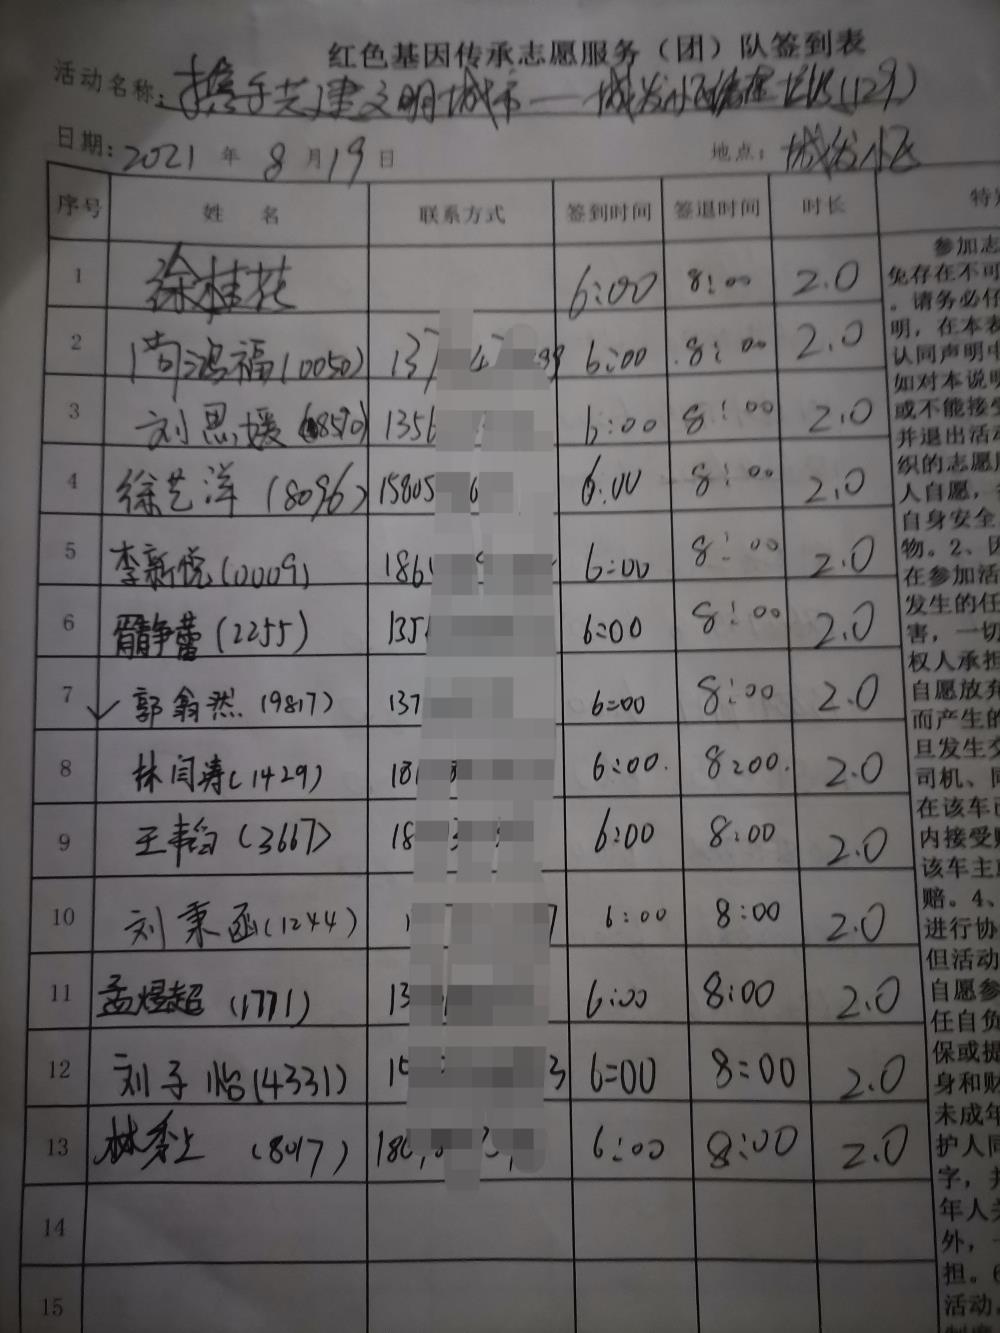 红色基因传承志愿服务（团）队签到表
活动名称：携手共建文明城市——城发小区 (129)
日期：2021年8月19日 地点：城发小区
序号 姓名 联系方式 签到时间 签退时间 时长 特
1 徐桂花 6:00 8:00 2.0
2 尚鸿福(0050) 137 6:00 8:00 2.0
3 刘思媛(8570) 1356 6:00 8:00 2.0
4 徐艺洋(8096) 15805 6:00 8:00 2.0
5 李新悦(0009) 186 6:00 8:00 2.0
6 静蕾(2255) 135 6:00 8:00 2.0
7 郭翁然(9817) 137 6:00 8:00 2.0
8 林闫涛(1429) 18 6:00. 8:00. 2.0
9 王韦(3667) 18 6:00 8:00 2.0
10 刘秉函(1244) 1 6:00 8:00 2.0
11 孟煜超(1771) 13 6:00 8:00 2.0
12 刘子怡(4331) 1 3 6:00 8:00 2.0
13 林秀上(8017) 180 6:00 8:00 2.0
14
15
参加志
免存在不可
。请务必仔
明，在本表
认同声明中
如对本说明
或不能接受
并退出活动
织的志愿服
人自愿，
自身安全
物。2、因
在参加活
发生的任
害，一切
权人承担
自愿放弃
而产生的
旦发生交
司机、同
在该车已
内接受赔
该车主或
赔。4、
进行协
但活动
自愿参
任自负
保或提
身和财
未成年
护人同
字，并
年人关
外，一
担。6
活动，